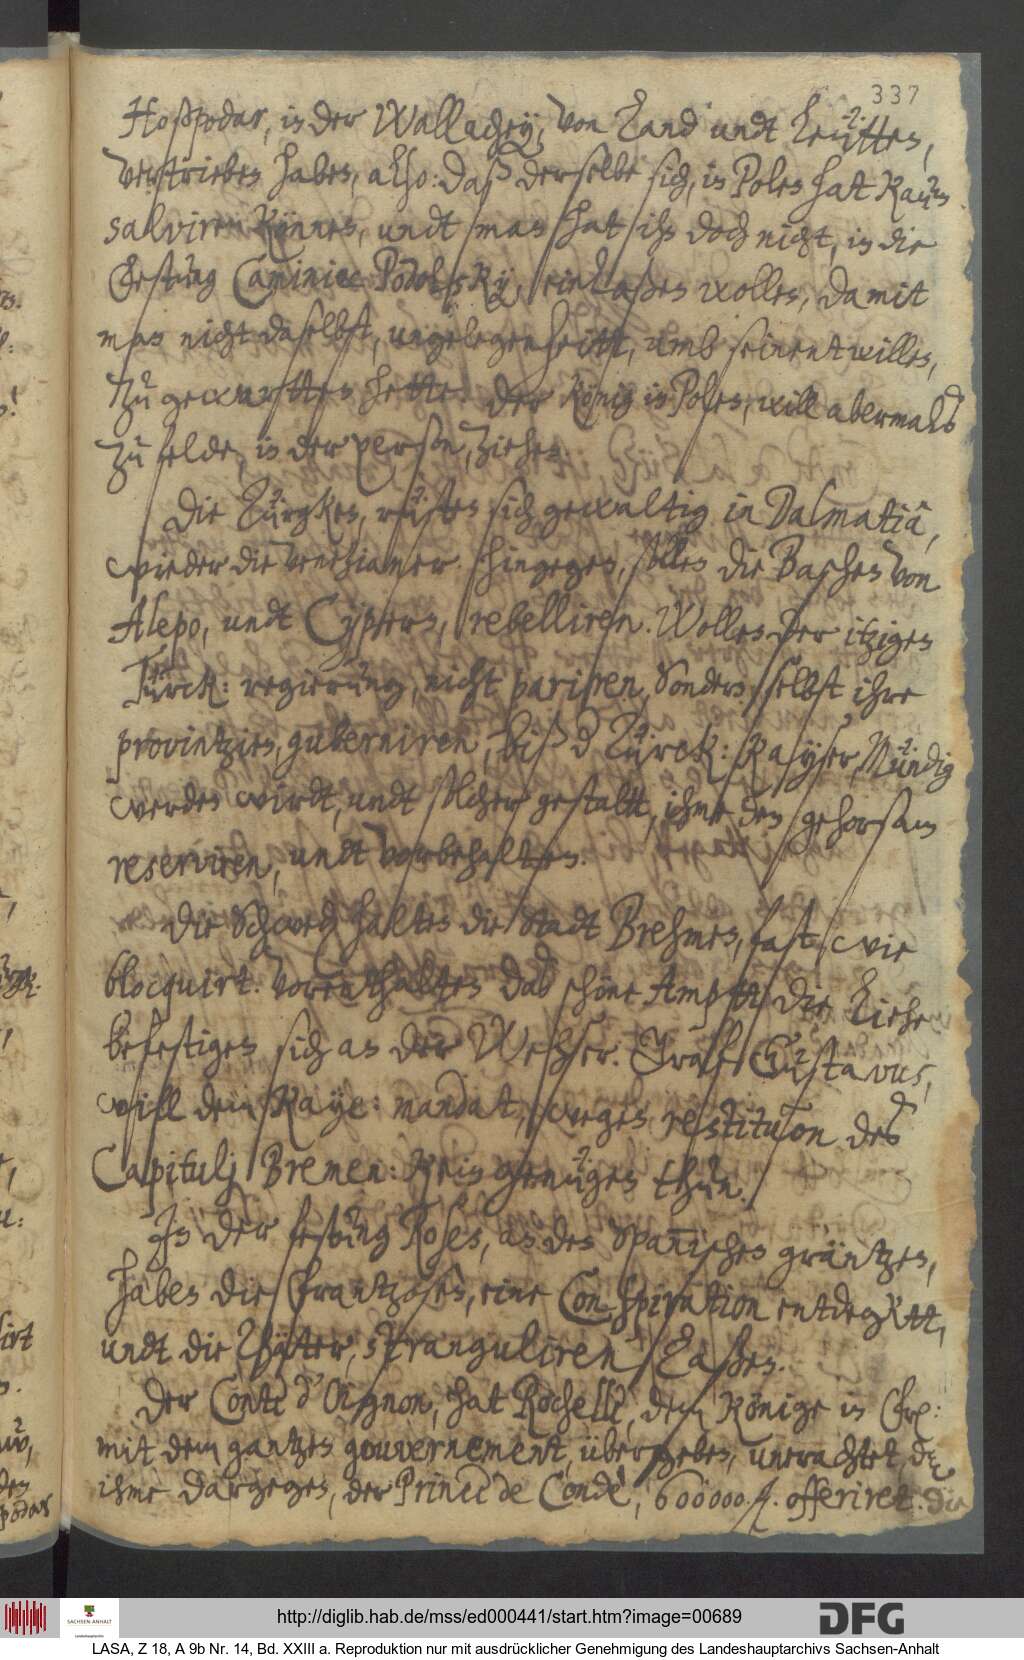 337
Hoßpodar, in der Wallachey, von Land undt Leütten,
vertrieben haben, also: daß derselbe sich, in Polen hat kaum
salviren können, undt man hat ihn doch nicht, in die
Festung Caminiec Podolsky, einlaßen wollen, damit
man nicht daselbst, ungelegenheitt, umb seinentwillen,
zu gewartten hette. Der König in Polen, will abermalß
zu felde, in der person, ziehen.
Die Türgken, rüsten sich gewaltig in Dalmatia,
wieder die Venetianer. hingegen, sollen die Baschen von
Alepo, undt Cypern, rebelliren. Wollen der itzigen
Türck: regierung, nicht pariren, sondern selbst ihre
provintzien, guberniren, biß d Türck: Kayser, Mündig
werden wirdt, undt solcher gestaltt, ihme den gehorsam
reserviren, undt vorbehalten.
Die Schweden halten die Stadt Brehmen, fast wie
blocquirt. Vorenthalten daß schöne Ampt die Liehe
befestigen sich an der Wehser. Graff Gustavus,
will dem Kaye: mandat, wegen restitution deß
Capitulj Bremen: kein genügen thun.
In der festung Roses, an den Spanischen gräntzen,
haben die Frantzosen, eine Conspiration entdegktt,
undt die Thäter, stranguliren laßen.
Der Conte d'Oignon, hat Rochelle, dem Könige in Fr:
mit dem gantzen gouvernement, übergeben, unerachtet,
ihme dargegen, der Prince de Condè, 600000. fl. offeriret. Die
http://diglib.hab.de/mss/ed000441/start.htm?image=00689
SACHSEN-ANHALT
DFG
LASA, Z 18, A 9b Nr. 14, Bd. XXIII a. Reproduktion nur mit ausdrücklicher Genehmigung des Landeshauptarchivs Sachsen-Anhalt